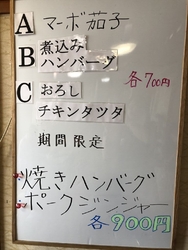 A マーボ茄子
B 煮込み
ハンバーグ
各700円
C おろし
チキンタツタ
期間限定
焼きハンバーグ
ポークジンジャー
各900円